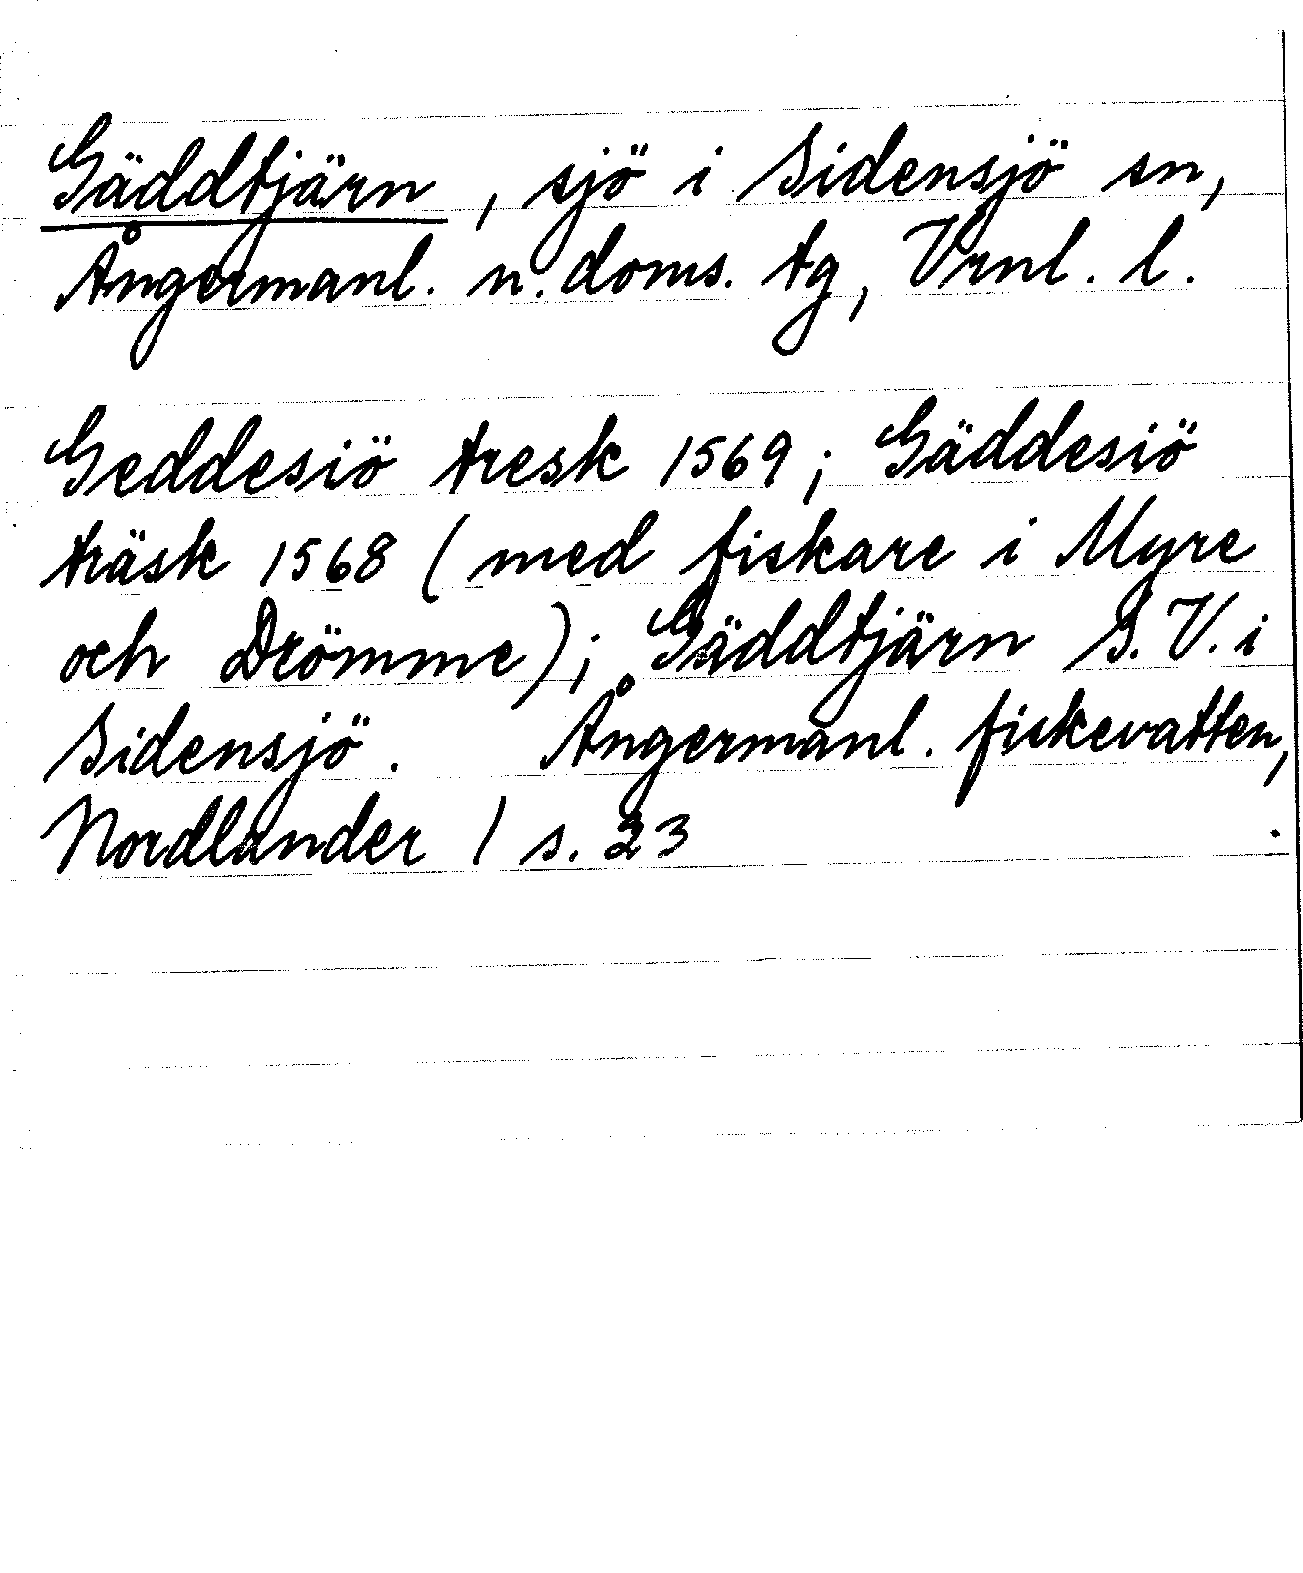 Gäddtjärn, sjö i Sidensjö sn,
Ångermanl. n. doms. tg, Vrnl. l.
Geddesiö tresk 1569; Gäddesiö
träsk 1568 (med fiskare i Myre
och Drömme); Gäddtjärn S.V. i
Sidensjö. Ångermanl. fiskevatten,
Nordlander 1 s. 23